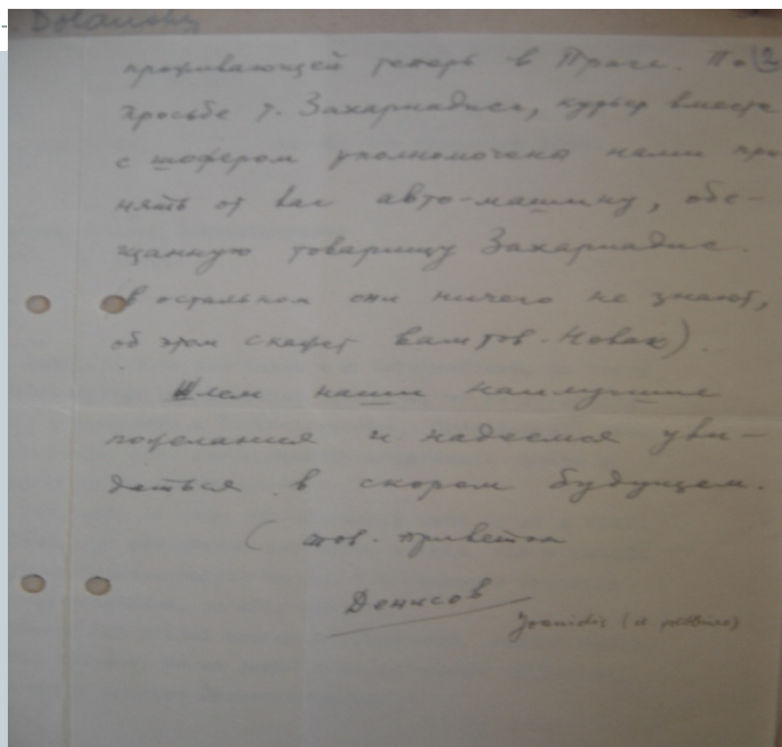 Dolansky
проживающей теперь в Праге. По 2
просьбе т. Захариадиса, курьер вместе
с шофером уполномочена нами при
нять от вас авто-машину, обе-
щанную товарищу Захариадис.
в остальном они ничего не знают,
об этом скажет вам тов. Новак).
Шлем наши наилучшие
пожелания и надеемся уви-
деться в скором будущем.
С тов. приветом
Денисов
Joanidis